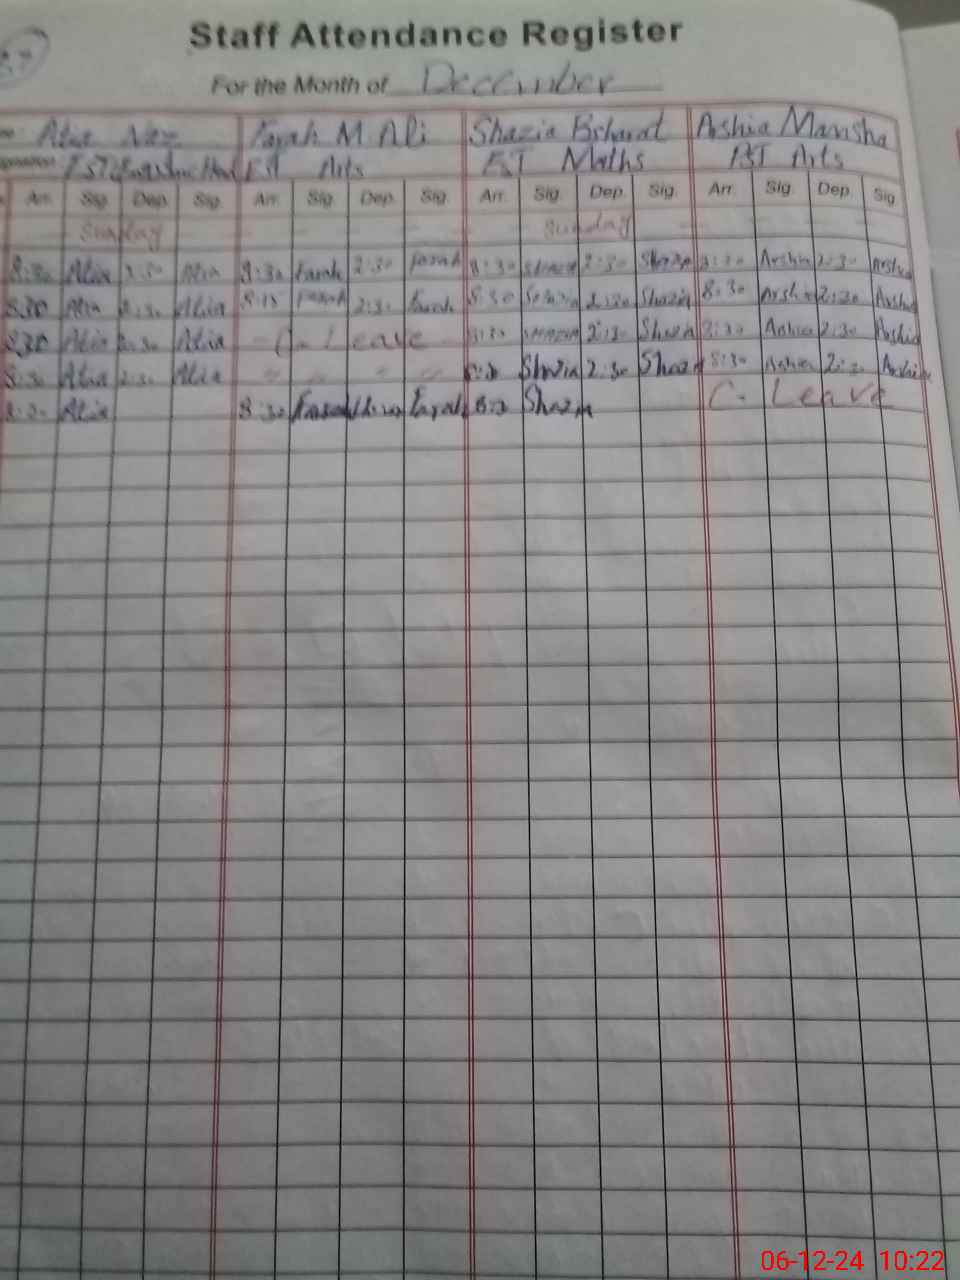 Staff Attendance Register
For the Month of December
Alia Naz Farah M. Ali Shazia Arshia Mansha
EST Arts EST Maths Arts
Arr. Sig. Dep. Sig. Arr. Sig. Dep. Sig. Arr. Sig. Dep. Sig. Arr. Sig. Dep. Sig.
Sunday Sunday
8:30 Alia 2:30 Alia 8:30 Farah 2:30 Farah 8:30 Shazia 2:30 Shazia 8:30 Arshia 2:30 Arshia
8:30 Alia 2:30 Alia 8:15 Farah 2:30 Farah 8:30 Shazia 2:30 Shazia 8:30 Arshia 2:30 Arshia
830 Alia 2:30 Alia C. Leave 8:30 Shazia 2:30 Shazia 8:30 Arshia 2:30 Arshia
8:30 Alia 2:30 Alia " " " " 8:30 Shazia 2:30 Shazia 8:30 Arshia 2:30 Arshia
8:30 Alia 8:30 Farah Farah 8:30 Shazia C. Leave
06-12-24 10:22